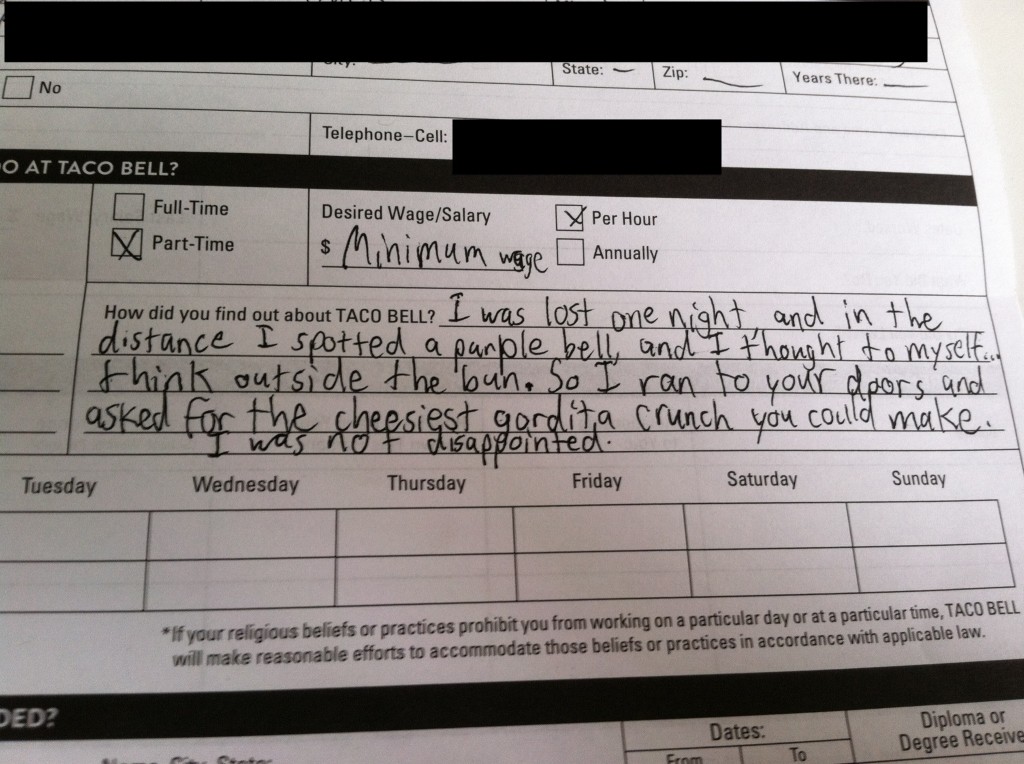 State: Zip: Years There:
No
Telephone-Cell:
O AT TACO BELL?
Full-Time
Part-Time
Desired Wage/Salary
$ Minimum wage
Per Hour
Annually
How did you find out about TACO BELL? I was lost one night, and in the
distance I spotted a purple bell, and I thought to myself...
think outside the bun. So I ran to your doors and
asked for the cheesiest gordita crunch you could make.
I was not disappointed.
Tuesday Wednesday Thursday Friday Saturday Sunday
*If your religious beliefs or practices prohibit you from working on a particular day or at a particular time, TACO BELL
will make reasonable efforts to accommodate those beliefs or practices in accordance with applicable law.
DED?
Dates:
From To
Diploma or
Degree Receive